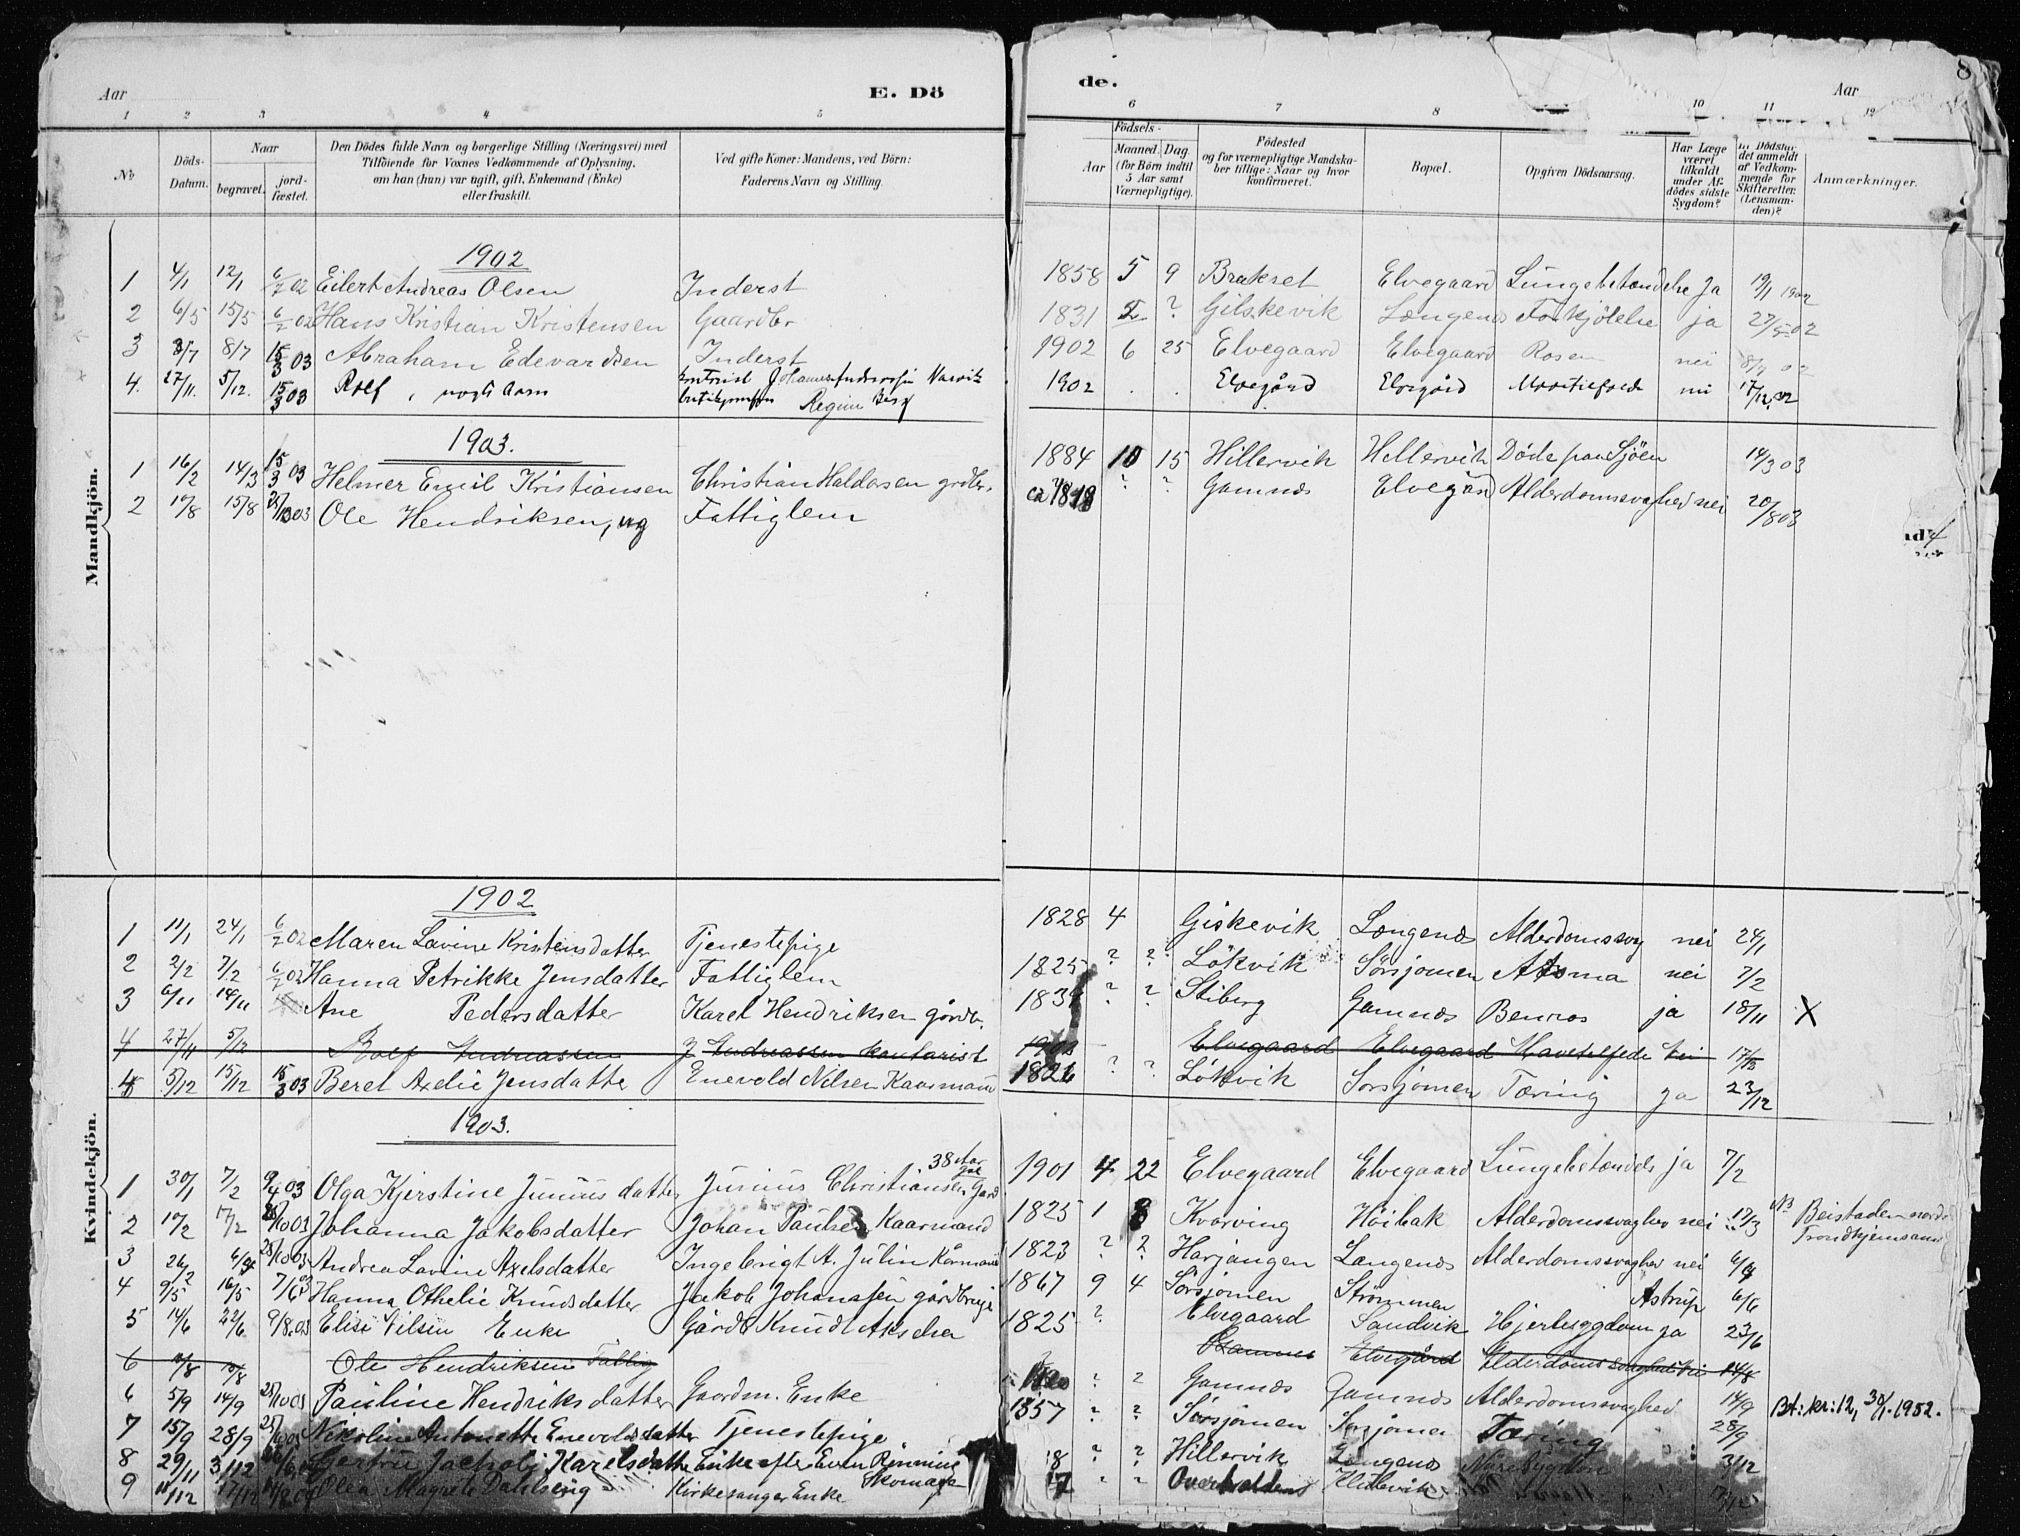 Aar E. Dö de. Aar 8
1 2 3 4 5 6 7 8 10 11 12
No
Döds-Datum.
Naar begravet. jordfæstet.
Den Dödes fulde Navn og borgerlige Stilling (Næringsvei) med
Tilföiende for Voxnes Vedkommende af Oplysning,
om han (hun) var ugift, gift, Enkemand (Enke)
eller fraskilt.
Ved gifte Koner: Mandens, ved Börn:
Faderens Navn og Stilling.
Födsels-
Aar Maaned. Dag
(for Börn indtil
5 Aar samt
Værnepligtige).
Födested
og for værnepligtige Mandska-
ber tillige: Naar og hvor
konfirmeret.
Bopæl.
Opgiven Dödsaarsag.
Har Læge
været
tilkaldt
under Af-
dödes sidste
Sygdom?
det anmeldt
af Vedkom-
mende for
Skifteretten
(Lensman-
den)?
Anmærkninger.
Mandkjön.
1902
1 4/1 12/1 6/7 02 Eilert Andreas Olsen Inderst 1858 5 9 Brakset Elvegaard Lungebetændelse Ja 19/1 1902
2 6/5 15/5 6/7 02 Hans Kristian Kristensen Gaardbr 1831 ? Gilskevik Længenes Forkjölelse ja 27/5 02
3 3/7 8/7 15/3 03 Abraham Edevardsen Inderst 1902 6 25 Elvegaard Elvegaard Rosen nei 8/7 02
4. 27/11. 5/12. 15/3 03 Rolf, uægt. barn Regine Berg 1902 . . Elvegård Elvegård nei 17/12.02
1903.
1 16/2 14/3 15/3 03 Helmer Emil Kristiansen Christian Haldorsen grdbr. 1884 10 15 Hillervik Hellervik Döde paa Sjöen 14/3 03
2 10/8 15/8 25/10 03 Ole Hendriksen, ug Fattiglem ca 1818 ? ? Gamnes Elvegård Alderdomssvaghed nei 20/8 03
Kvindekjön.
1902
1 11/1 24/1 6/7 02 Maren Lavine Kristensdatter Tjenestepige 1828 4 Giskevik Længenes Alderdomssvag nei 24/1
2 2/2 7/2 6/7 02 Hanna Petrikke Jensdatter Fattiglem 1825 ? ? Lökvik Sörsjomen Astma nei 7/2
3 6/11 14/11 Ane Pedersdatter Karel Hendriksen gårdb. ? ? Stiberg Gamnes ja 18/11 X
4 27/11 5/12 Rolf Andreassen J Andreassen kontorist 1902 Elvegaard Elvegaard nei 17/12
4 5/12 15/12 15/3 03 Beret Axelie Jensdatter Enevold Nilsen Kaarmand 1826 ? ? Lökvik Sörsjomen Tæring ja 23/12
1903.
38 Aar
1 30/1 7/2 9/4 03 Olga Kjerstine Juniusdatter Junius Christiansen Gard 1901 4 22 Elvegaard Elvegaard Lungebetændels ja 7/2
2 10/2 17/2 Johanna Jakobsdatter Johan Paulsen Kaarmand 1825 1 8 Kvarving Höibak Alderdomssvaghed nei 17/3 NB Beistaden nordr
Trondhjemsamt
3 26/2 25/10 03 Andrea Lavine Axelsdatter Ingebrigt A. Julin Kårmand 1823 ? ? Harjangen Langenes Alderdomssvaghed nei
4 9/5 16/5 7/6 03 Hanna Othelie Knudsdatter Jakob Johansen gårdbruger 1867 9 4 Sörsjomen Strömmen Astrup 6/6
5 14/6 22/6 9/8.03 Elise Nilsen Enke Gårdb Knudt Akselsen 1825 ? Elvegaard Sandvik Hjertesygdom ja 23/6
6 10/8 15/8 Ole Hendriksen Fattig Gamnes Elvegård Alderdomssvaghed nei 14/8
6 5/9 14/9 25/10 03 Pauline Hendriksdatter Gaardm. Enke ? ? Gamnes Gamnes Alderdomssvaghed 14/9 Bt: kr: 12, 30/1-1952.
7 15/9 28/9 25/10 03 Nikoline Antonette Enevoldsdatter Tjenestepige 1857 ? ? Sörsjomen Sorsjomen Tæring 28/9
8 29/11 3/12 Gertrue Jacobi Karelsdatter Enke efter Even Rönning 18 ? ? Hillervik Længenes Nyresygdom 3/12
Skomager
9 10/12 17/12 Olea Magrete Dahlseng Kirkesanger Enke 17 Overhaldens Hillervik 17/12